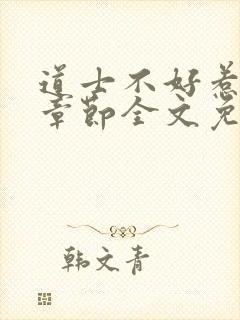 道士不好惹
章节全文免
韩文青